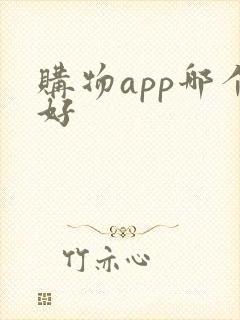 購物app哪个
好
竹亦心